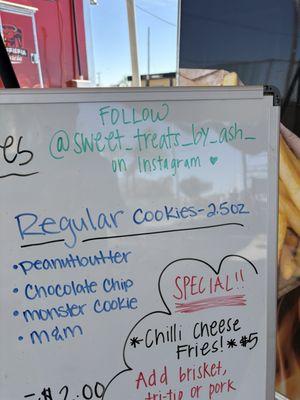 es
FOLLOW
@sweet_treats_by_ash_
on Instagram ♥
Regular Cookies-2.5oz
• peanutbutter
• chocolate chip
• monster cookie
• m&m
= $2.00
SPECIAL!!
*Chilli Cheese
Fries!* $5
Add brisket,
tri-tip or pork